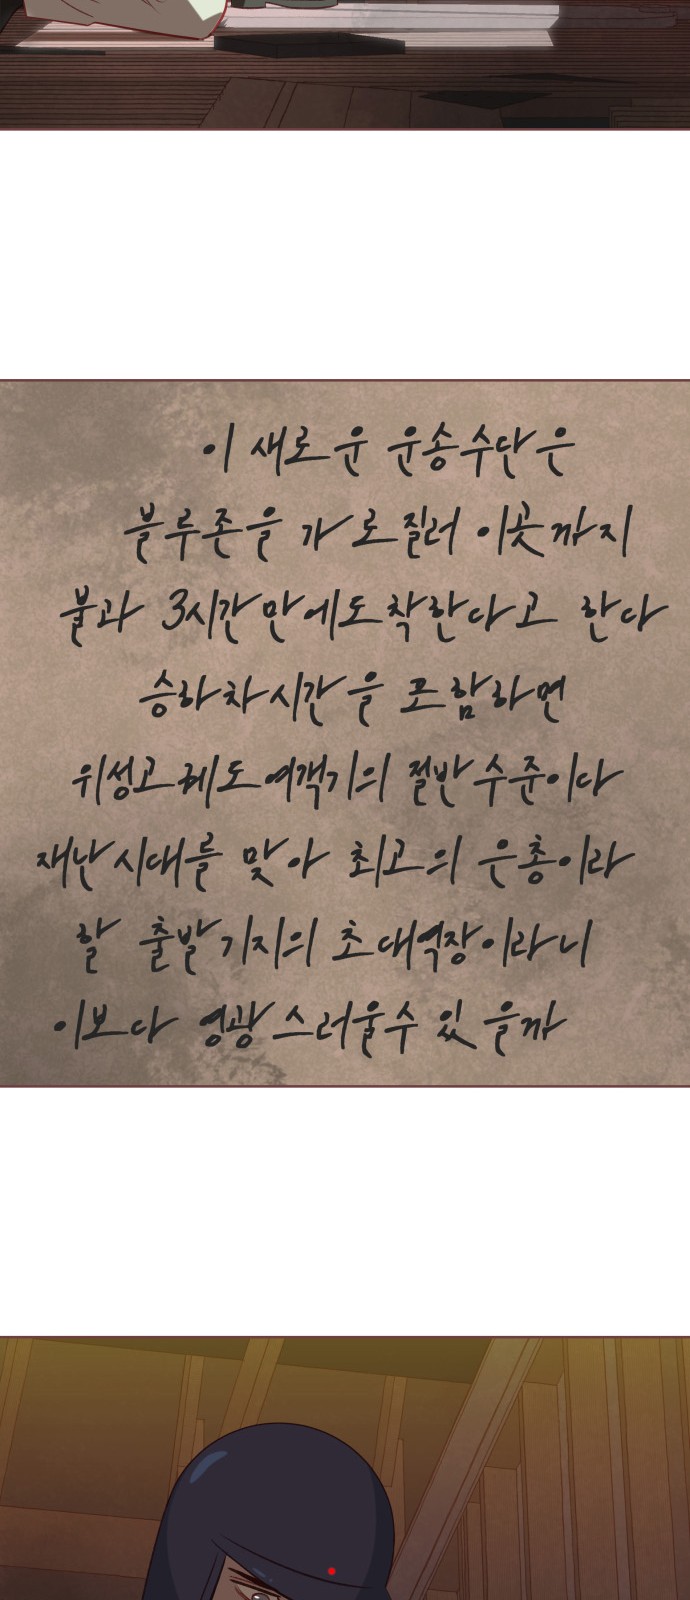 이 새로운 운송수단은
블루존을 가로질러 이곳까지
불과 3시간만에도착한다고 한다
승하차시간을 포함하면
위성고궤도여객기의 절반수준이다
재난시대를 맞아 최고의 은총이라
할 출발기지의 초대역장이라니
이보다 영광스러울수 있을까